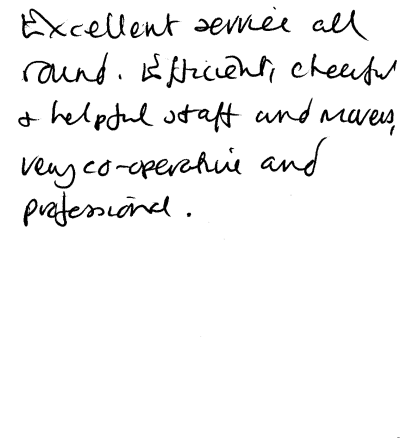 Excellent service all
round. Efficient, cheerful
& helpful staff and movers,
very co-operative and
professional.